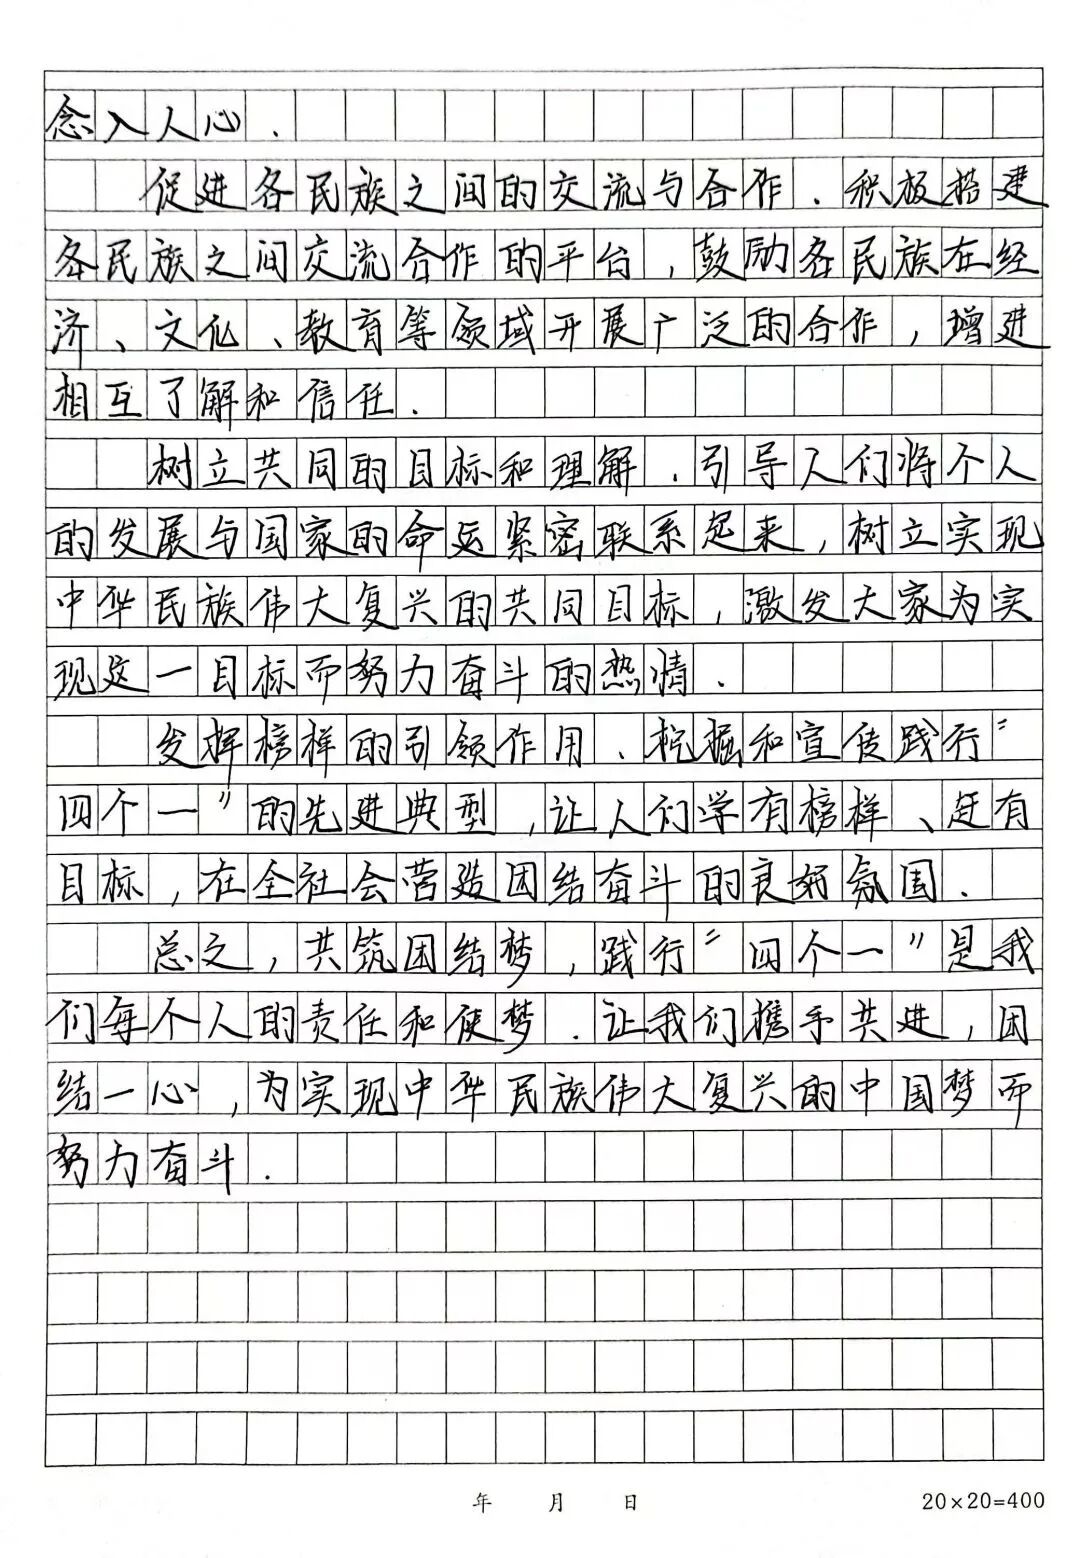 念入人心.
促进各民族之间的交流与合作.积极搭建
各民族之间交流合作的平台,鼓励各民族在经
济、文化、教育等领域开展广泛的合作,增进
相互了解和信任.
树立共同的目标和理解.引导人们将个人
的发展与国家的命运紧密联系起来,树立实现
中华民族伟大复兴的共同目标,激发大家为实
现这一目标而努力奋斗的热情.
发挥榜样的引领作用、挖掘和宣传践行“
四个一”的先进典型,让人们学有榜样、赶有
目标,在全社会营造团结奋斗的良好氛围.
总之,共筑团结梦,践行“四个一”是我
们每个人的责任和使梦.让我们携手共进,团
结一心,为实现中华民族伟大复兴的中国梦而
努力奋斗.
年 月 日 20×20=400